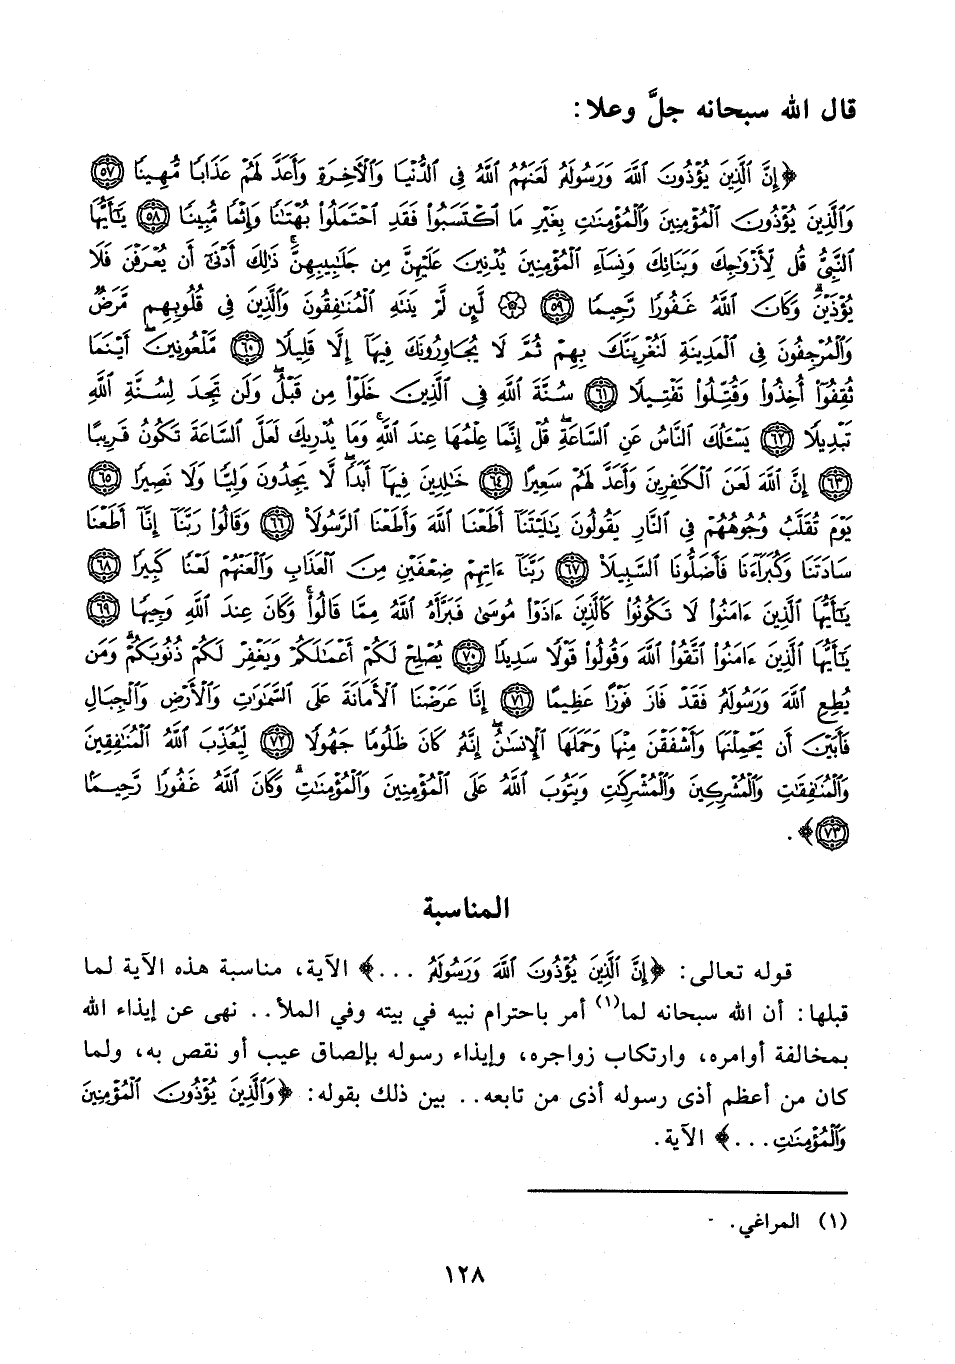 قال الله سبحانه جلَّ وعلا:
﴿إِنَّ ٱلَّذِينَ يُؤْذُونَ ٱللَّهَ وَرَسُولَهُۥ لَعَنَهُمُ ٱللَّهُ فِى ٱلدُّنْيَا وَٱلْأَخِرَةِ وَأَعَدَّ لَهُمْ عَذَابًا مُّهِينًا ٥٧
وَٱلَّذِينَ يُؤْذُونَ ٱلْمُؤْمِنِينَ وَٱلْمُؤْمِنَٰتِ بِغَيْرِ مَا ٱكْتَسَبُوا۟ فَقَدِ ٱحْتَمَلُوا۟ بُهْتَٰنًا وَإِثْمًا مُّبِينًا ٥٨ يَٰٓأَيُّهَا
ٱلنَّبِىُّ قُل لِّأَزْوَٰجِكَ وَبَنَاتِكَ وَنِسَآءِ ٱلْمُؤْمِنِينَ يُدْنِينَ عَلَيْهِنَّ مِن جَلَٰبِيبِهِنَّ ۚ ذَٰلِكَ أَدْنَىٰٓ أَن يُعْرَفْنَ فَلَا
يُؤْذَيْنَ ۗ وَكَانَ ٱللَّهُ غَفُورًا رَّحِيمًا ٥٩ ۞ لَّئِن لَّمْ يَنتَهِ ٱلْمُنَٰفِقُونَ وَٱلَّذِينَ فِى قُلُوبِهِم مَّرَضٌ
وَٱلْمُرْجِفُونَ فِى ٱلْمَدِينَةِ لَنُغْرِيَنَّكَ بِهِمْ ثُمَّ لَا يُجَاوِرُونَكَ فِيهَآ إِلَّا قَلِيلًا ٦٠ مَّلْعُونِينَ ۖ أَيْنَمَا
ثُقِفُوٓا۟ أُخِذُوا۟ وَقُتِّلُوا۟ تَقْتِيلًا ٦١ سُنَّةَ ٱللَّهِ فِى ٱلَّذِينَ خَلَوْا۟ مِن قَبْلُ ۖ وَلَن تَجِدَ لِسُنَّةِ ٱللَّهِ
تَبْدِيلًا ٦٢ يَسْـَٔلُكَ ٱلنَّاسُ عَنِ ٱلسَّاعَةِ ۖ قُلْ إِنَّمَا عِلْمُهَا عِندَ ٱللَّهِ ۚ وَمَا يُدْرِيكَ لَعَلَّ ٱلسَّاعَةَ تَكُونُ قَرِيبًا
٦٣ إِنَّ ٱللَّهَ لَعَنَ ٱلْكَٰفِرِينَ وَأَعَدَّ لَهُمْ سَعِيرًا ٦٤ خَٰلِدِينَ فِيهَآ أَبَدًا ۖ لَّا يَجِدُونَ وَلِيًّا وَلَا نَصِيرًا ٦٥
يَوْمَ تُقَلَّبُ وُجُوهُهُمْ فِى ٱلنَّارِ يَقُولُونَ يَٰلَيْتَنَآ أَطَعْنَا ٱللَّهَ وَأَطَعْنَا ٱلرَّسُولَا۠ ٦٦ وَقَالُوا۟ رَبَّنَآ إِنَّآ أَطَعْنَا
سَادَتَنَا وَكُبَرَآءَنَا فَأَضَلُّونَا ٱلسَّبِيلَا۠ ٦٧ رَبَّنَآ ءَاتِهِمْ ضِعْفَيْنِ مِنَ ٱلْعَذَابِ وَٱلْعَنْهُمْ لَعْنًا كَبِيرًا ٦٨
يَٰٓأَيُّهَا ٱلَّذِينَ ءَامَنُوا۟ لَا تَكُونُوا۟ كَٱلَّذِينَ ءَاذَوْا۟ مُوسَىٰ فَبَرَّأَهُ ٱللَّهُ مِمَّا قَالُوا۟ ۚ وَكَانَ عِندَ ٱللَّهِ وَجِيهًا ٦٩
يَٰٓأَيُّهَا ٱلَّذِينَ ءَامَنُوا۟ ٱتَّقُوا۟ ٱللَّهَ وَقُولُوا۟ قَوْلًا سَدِيدًا ٧٠ يُصْلِحْ لَكُمْ أَعْمَٰلَكُمْ وَيَغْفِرْ لَكُمْ ذُنُوبَكُمْ ۗ وَمَن
يُطِعِ ٱللَّهَ وَرَسُولَهُۥ فَقَدْ فَازَ فَوْزًا عَظِيمًا ٧١ إِنَّا عَرَضْنَا ٱلْأَمَانَةَ عَلَى ٱلسَّمَٰوَٰتِ وَٱلْأَرْضِ وَٱلْجِبَالِ
فَأَبَيْنَ أَن يَحْمِلْنَهَا وَأَشْفَقْنَ مِنْهَا وَحَمَلَهَا ٱلْإِنسَٰنُ ۖ إِنَّهُۥ كَانَ ظَلُومًا جَهُولًا ٧٢ لِّيُعَذِّبَ ٱللَّهُ ٱلْمُنَٰفِقِينَ
وَٱلْمُنَٰفِقَٰتِ وَٱلْمُشْرِكِينَ وَٱلْمُشْرِكَٰتِ وَيَتُوبَ ٱللَّهُ عَلَى ٱلْمُؤْمِنِينَ وَٱلْمُؤْمِنَٰتِ ۗ وَكَانَ ٱللَّهُ غَفُورًا رَّحِيمًا
٧٣﴾.
المناسبة
قوله تعالى: ﴿إِنَّ ٱلَّذِينَ يُؤْذُونَ ٱللَّهَ وَرَسُولَهُۥ ...﴾ الآية، مناسبة هذه الآية لما
قبلها: أن الله سبحانه لما(١) أمر باحترام نبيه في بيته وفي الملأ.. نهى عن إيذاء الله
بمخالفة أوامره، وارتكاب زواجره، وإيذاء رسوله بإلصاق عيب أو نقص به، ولما
كان من أعظم أذى رسوله أذى من تابعه.. بين ذلك بقوله: ﴿وَٱلَّذِينَ يُؤْذُونَ ٱلْمُؤْمِنِينَ
وَٱلْمُؤْمِنَٰتِ...﴾ الآية.
(١) المراغي.
١٢٨